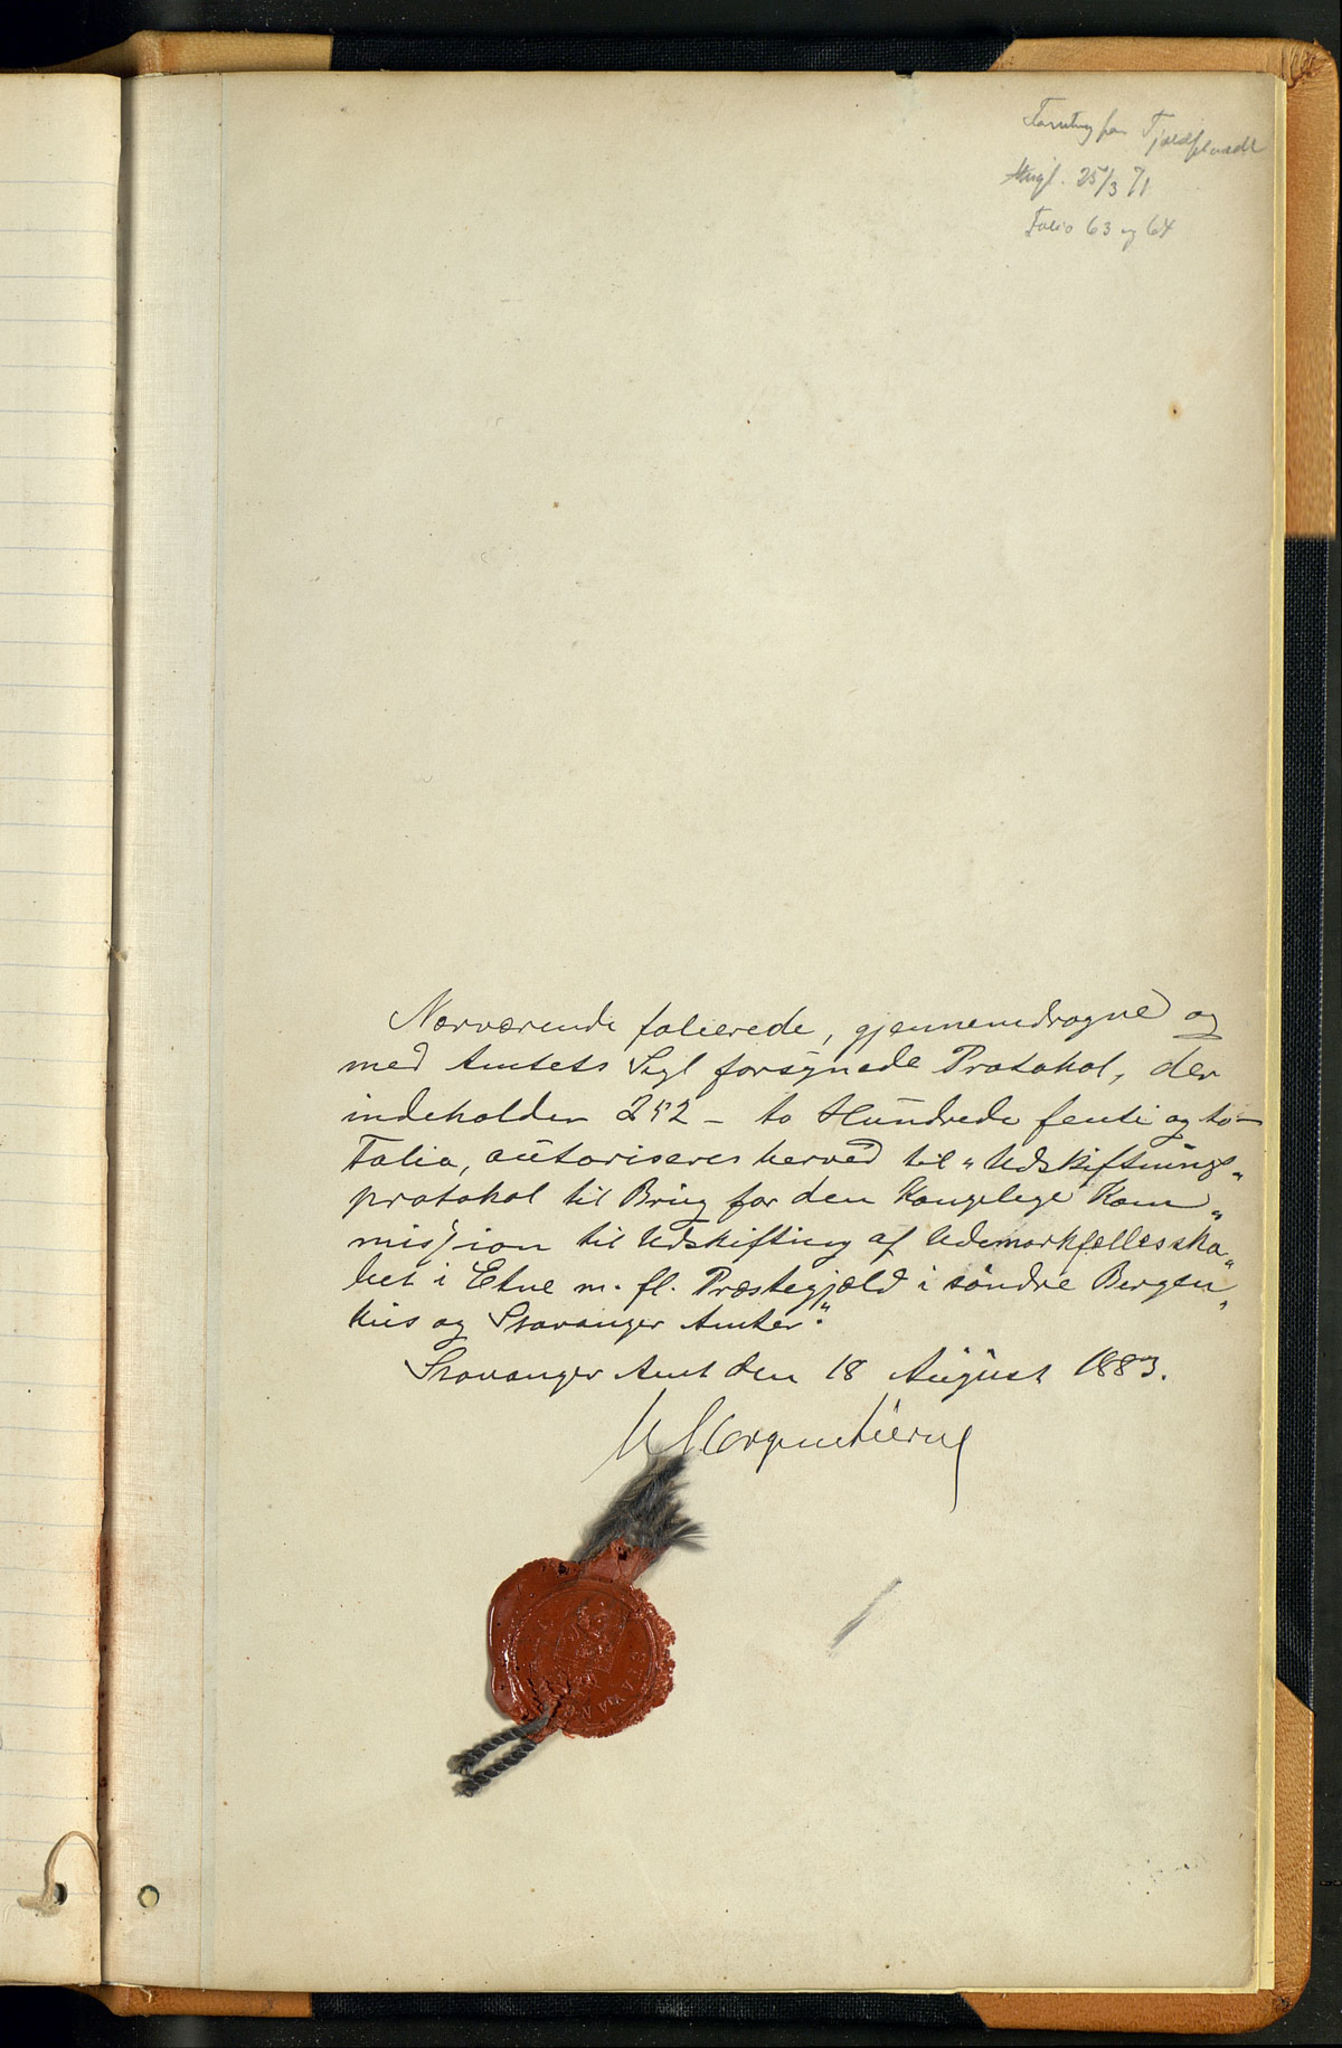 Tjeldflaadt
25/3 71
Folio 63 og 64
Nærværende folierede, gjennemdragne og
med Amtets Segl forsynede Protokol, der
indeholder 252 - to Hundrede femti og to -
Folia, autoriseres herved til "Udskiftnings"
protokol til Brug for den Kongelige Kom"
misjion til Udskiftning af Udemarkfællesska"
bet i Etne m. fl. Præstegjæld i söndre Bergen"
hus og Stavanger Amter."
Stavanger Amt den 18 August 1883.
Morgenstierne
STAVANG